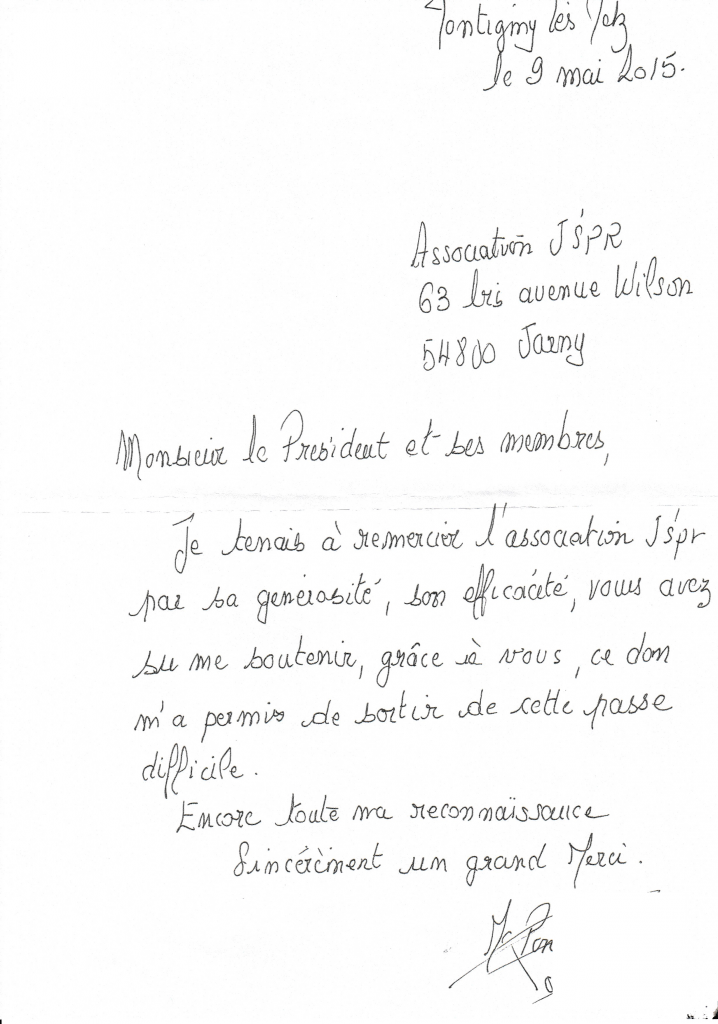 Montigny lès Metz
le 9 mai 2015.
Association J'SPR
63 bis avenue Wilson
54800 Jarny
Monsieur le Président et ses membres,
Je tenais à remercier l'association J's'pr
par sa génerosité, son efficacité, vous avez
su me soutenir, grâce à vous, ce don
m'a permis de sortir de cette passe
difficile.
Encore toute ma reconnaïssance
Sincérèment un grand Merci.